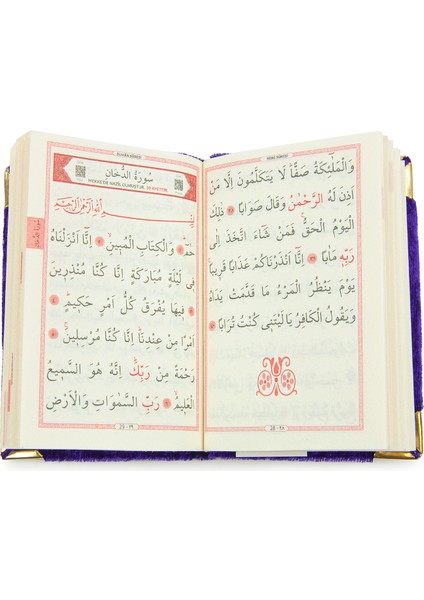 NEBE SÛRESİ
وَالْمَلٰٓئِكَةُ صَفًّاۜ لَا يَتَكَلَّمُونَ اِلَّا مَنْ
اَذِنَ لَهُ الرَّحْمٰنُ وَقَالَ صَوَابًا ﴿٣٨﴾ ذٰلِكَ
الْيَوْمُ الْحَقُّۚ فَمَنْ شَٓاءَ اتَّخَذَ اِلٰى
رَبِّهٖ مَاٰبًا ﴿٣٩﴾ اِنَّٓا اَنْذَرْنَاكُمْ عَذَابًا قَرٖيبًاۚ
يَوْمَ يَنْظُرُ الْمَرْءُ مَا قَدَّمَتْ يَدَاهُ
وَيَقُولُ الْكَافِرُ يَا لَيْتَنٖى كُنْتُ تُرَابًا ﴿٤٠﴾
28 - ٢٨
DUHÂN SÛRESİ
سُورَةُ الدُّخَانِ
MEKKE'DE NAZİL OLMUŞTUR. 59 AYETTİR.
بِسْمِ اللّٰهِ الرَّحْمٰنِ الرَّحٖيمِ
سورة الدخان
وَالْكِتَابِ الْمُبٖينِۙ ﴿٢﴾ اِنَّٓا اَنْزَلْنَاهُ
فٖى لَيْلَةٍ مُبَارَكَةٍ اِنَّا كُنَّا مُنْذِرٖينَ
﴿٣﴾ فٖيهَا يُفْرَقُ كُلُّ اَمْرٍ حَكٖيمٍۙ ﴿٤﴾
اَمْرًا مِنْ عِنْدِنَاۜ اِنَّا كُنَّا مُرْسِلٖينَۚ ﴿٥﴾
رَحْمَةً مِنْ رَبِّكَۜ اِنَّهُ هُوَ السَّمٖيعُ
الْعَلٖيمُۙ ﴿٦﴾ رَبِّ السَّمٰوَاتِ وَالْاَرْضِ
29 - ٢٩